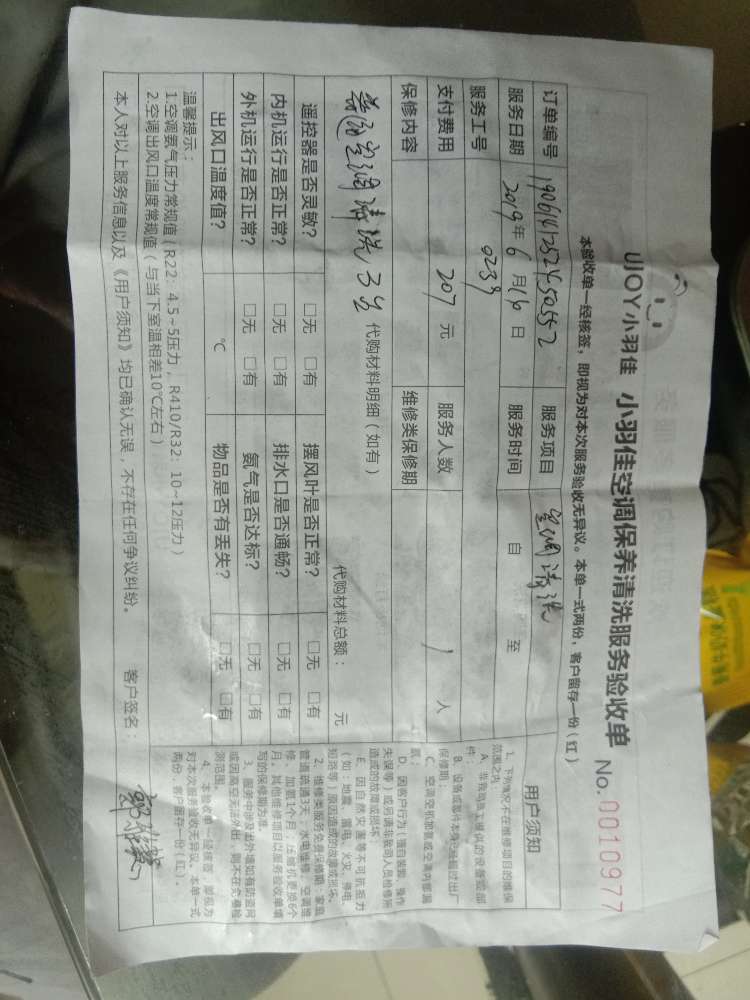 UJOY小羽佳 小羽佳空调保养清洗服务验收单 No.0010977
本验收单一经核签，即视为对本次服务验收无异议。本单一式两份，客户留存一份（红）
订单编号 服务项目 空调清洗
服务日期 2019年6月16日 服务时间 自 至
服务工号 0239
支付费用 207 元 服务人数 1 人
保修内容 维修类保修期
代购材料明细（如有） 代购材料总额： 元
普通空调清洗3台
遥控器是否灵敏？ □无 □有 摆风叶是否正常？ □无 □有
内机运行是否正常？ □无 □有 排水口是否通畅？ □无 □有
外机运行是否正常？ □无 □有 氨气是否达标？ □无 □有
出风口温度值？ ℃ 物品是否有丢失？ □无 □有
温馨提示：
1.空调氨气压力常规值（R22：4.5~5压力，R410/R32：10~12压力）
2.空调出风口温度常规值（与当下室温相差10℃左右）
本人对以上服务信息以及《用户须知》均已确认无误，不存在任何争议纠纷。 客户签名：
用户须知
1、下列情况不在维修项目的维保
范围之内：
A、非我司员工提供的设备或部
件；
B、设备或部件本身已经超过出厂
保修期；
C、空调空机加氨或空调内部漏
氨；
D、因客户行为（擅自装卸、操作
失误等）或另请非我司人员检修所
造成的故障或损坏；
E、因自然灾害等不可抗拒力
（如：地震、雷电、火灾、停电、
短路等）原因造成的故障或损坏。
2、维修类服务免费保修期：家庭
管道疏通3天，水电维修、空调维
修、加氨1个月，压缩机更换6个
月。其他维修项目以服务验收单填
写的保修期为准。
3、服务中涉及出外墙如有防盗网
或因高空无法外出，则不在免费检
测范围。
4、本验收单一经核签，即视为
对本次服务验收无异议。本单一式
两份，客户留存一份（红）。